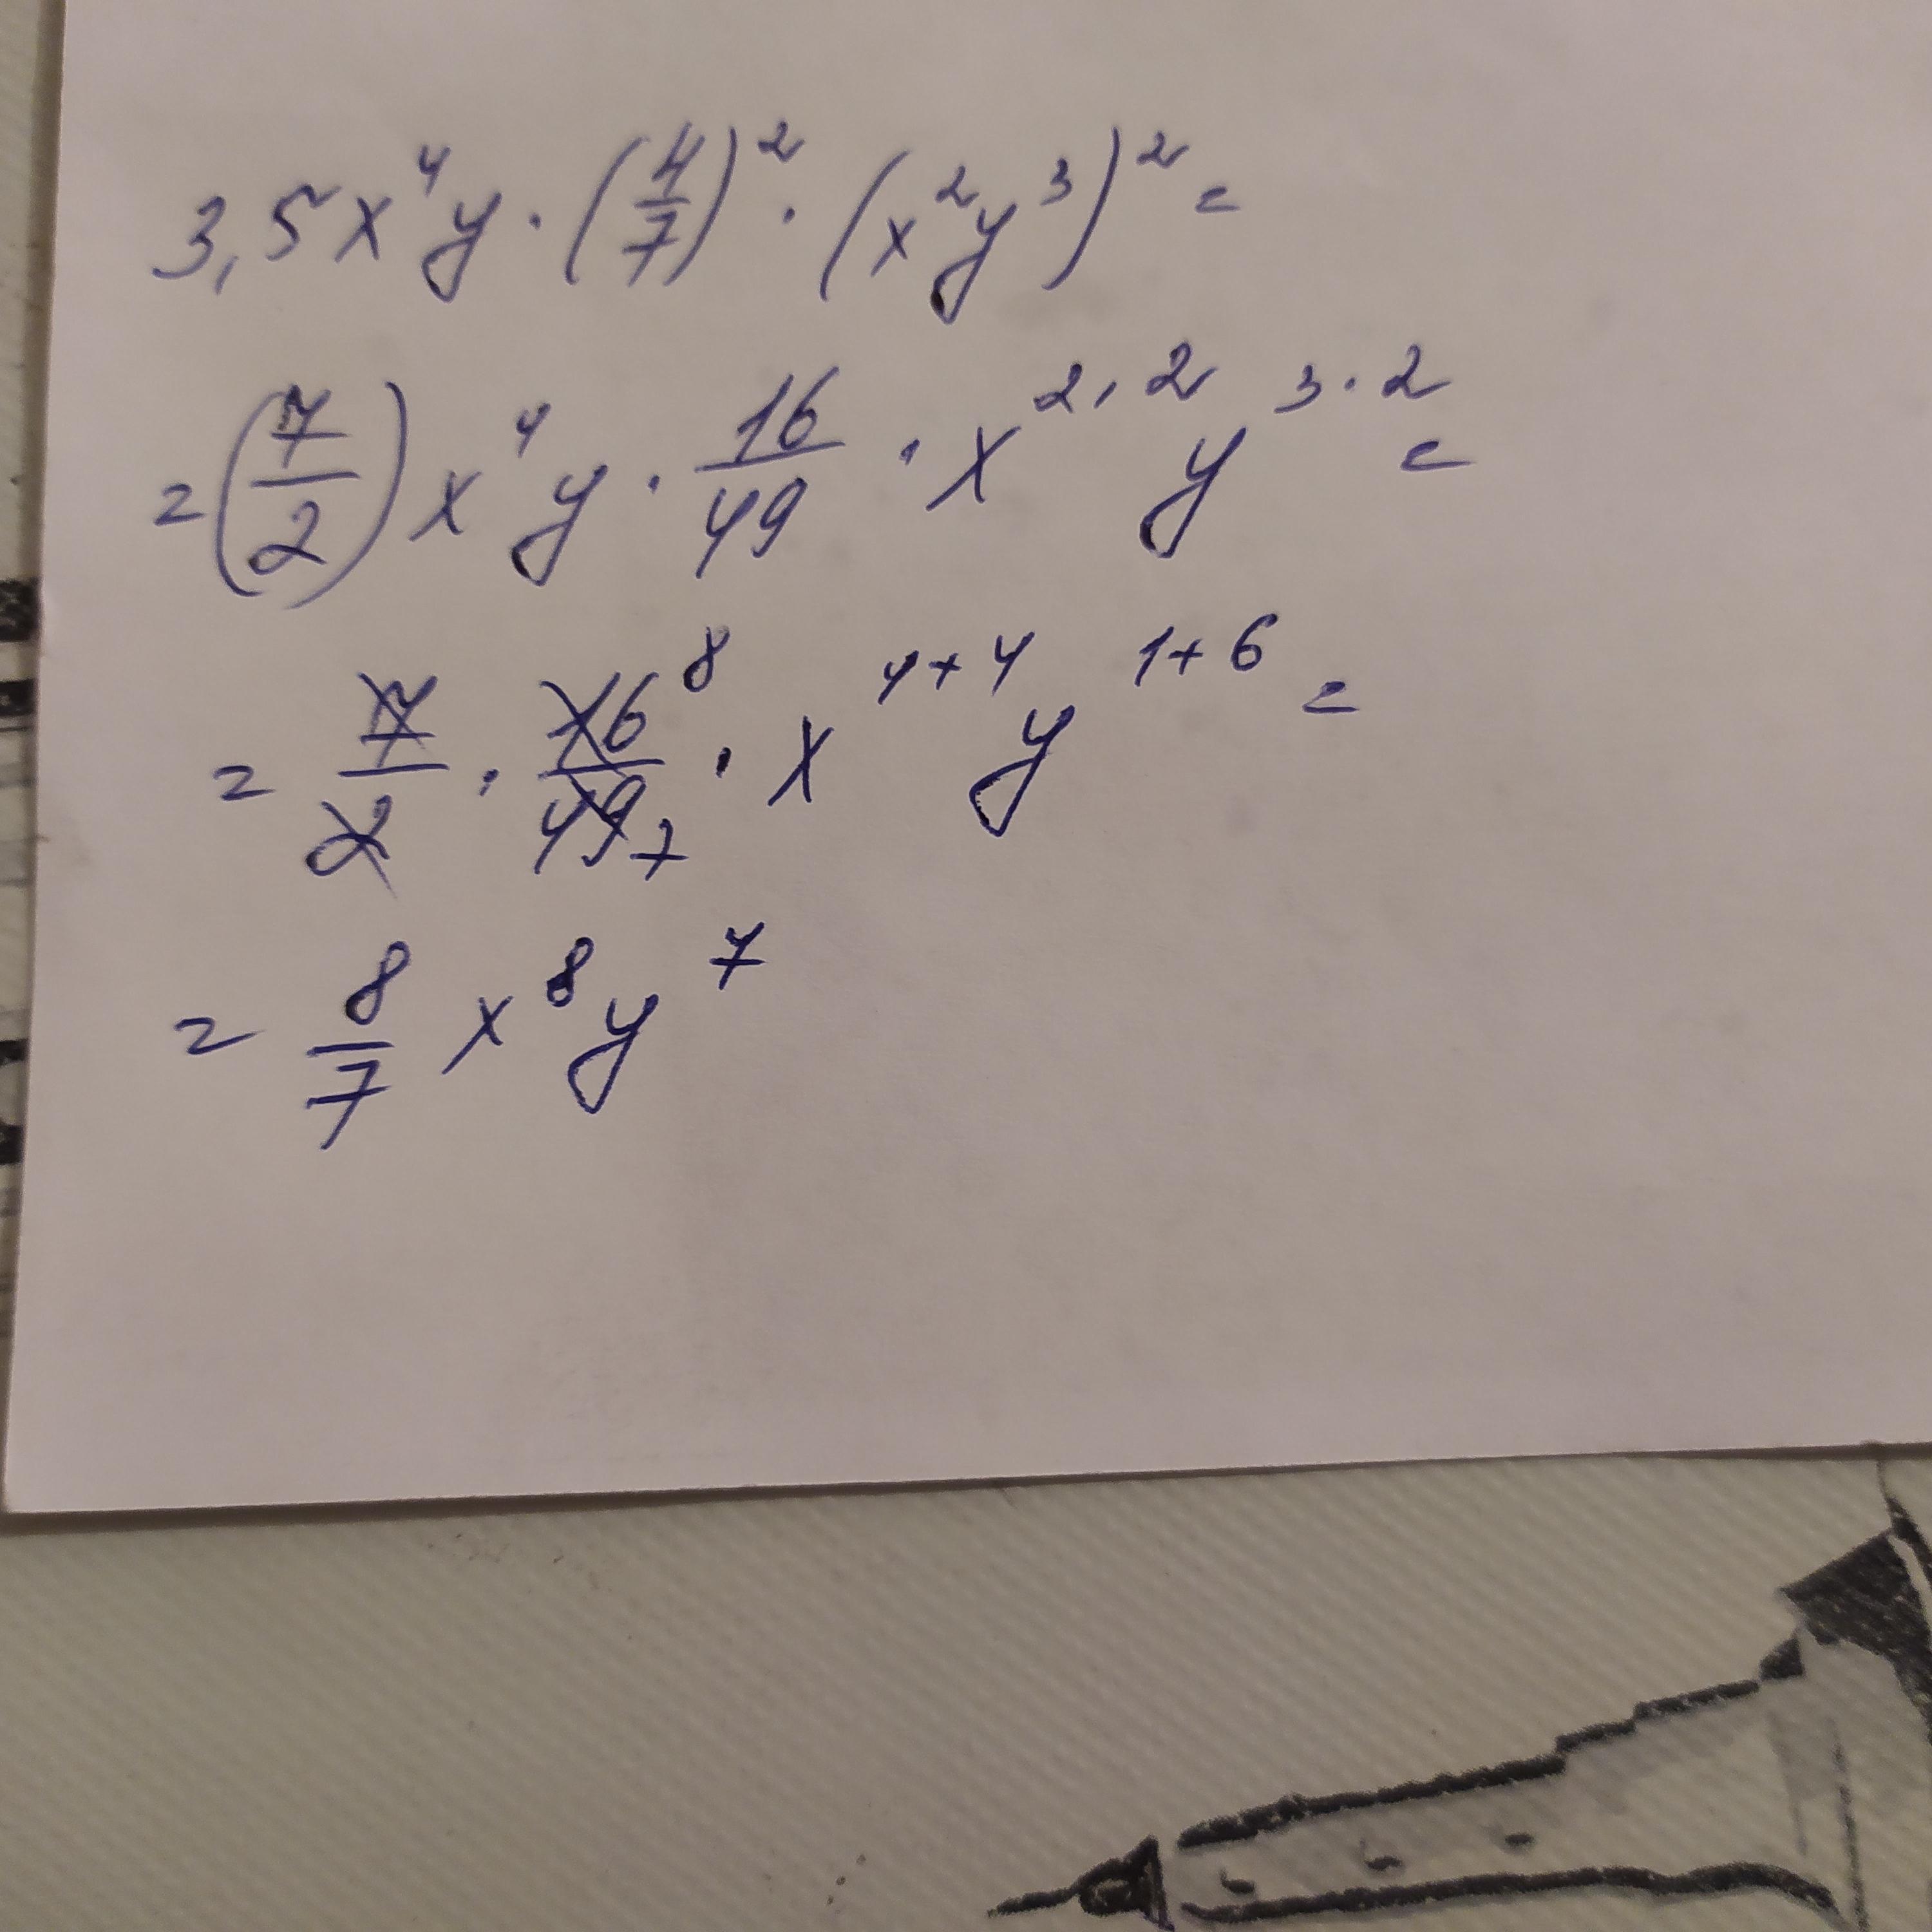 3,5x⁴y · (4/7)² · (x²y³)² =
= (7/2) x⁴y · 16/49 · x²·² y³·² =
= 7/2 · 16/49 ⁸ ₇ · x⁴⁺⁴ y¹⁺⁶ =
= 8/7 x⁸y⁷